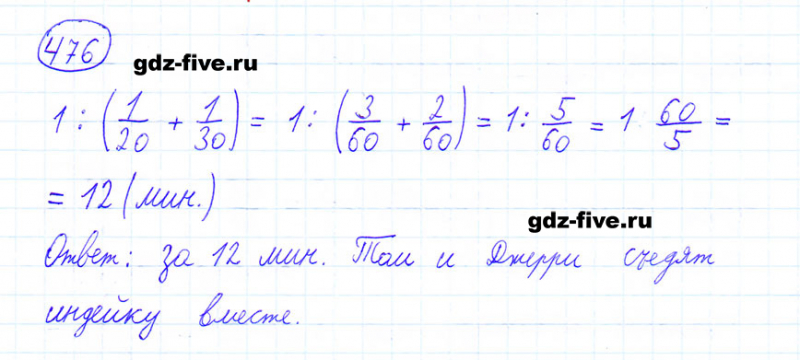 476
gdz-five.ru
1 : (1/20 + 1/30) = 1 : (3/60 + 2/60) = 1 : 5/60 = 1 60/5 =
= 12 (мин.)
gdz-five.ru
Ответ: за 12 мин. Том и Джерри съедят
индейку вместе.